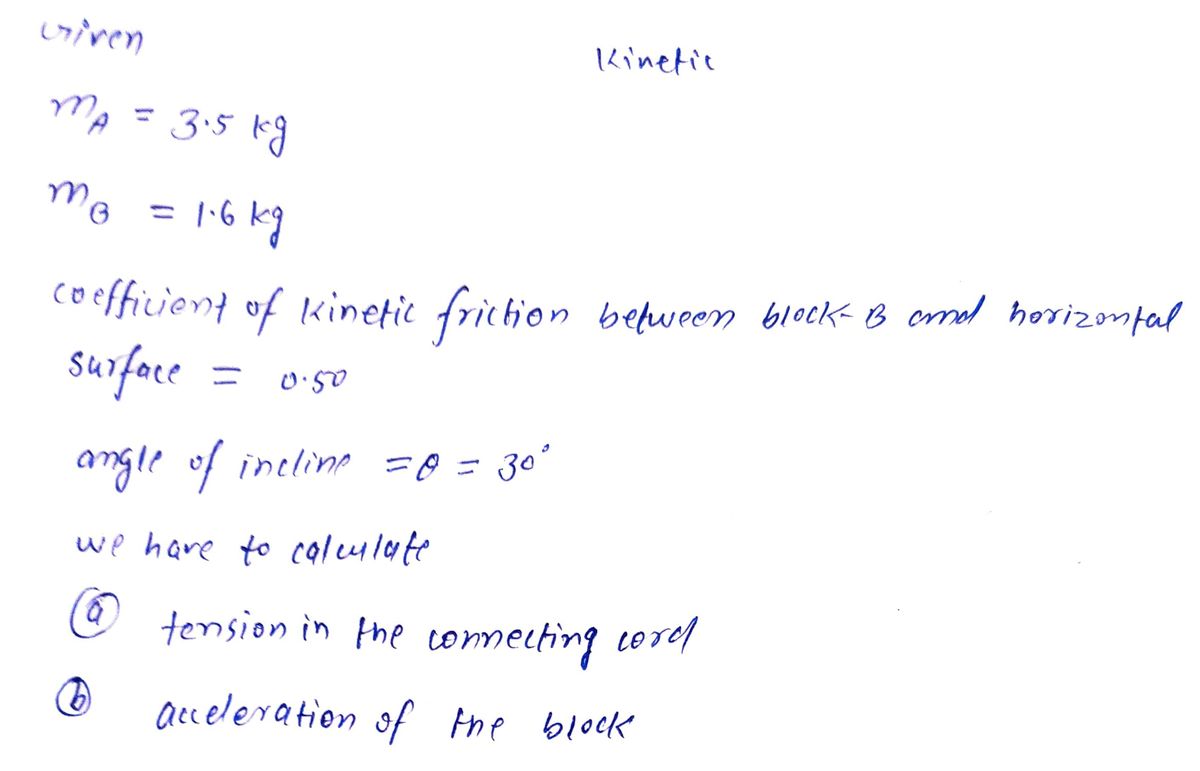 Given
Kinetic
m_A = 3.5 kg
m_B = 1.6 kg
coefficient of kinetic friction between block-B and horizontal
surface = 0.50
angle of incline = θ = 30°
we have to calculate
(a) tension in the connecting cord
(b) acceleration of the block